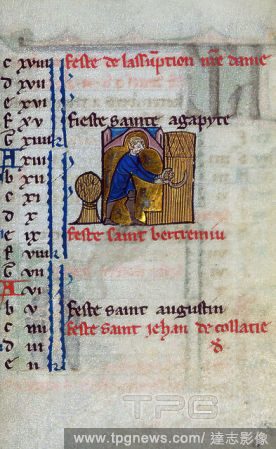 c xviii feste de lassuption nre dame
d xvii
e xvi
f xv fieste sainte agapyte
G xiiii
A xiii
b xii
c xi
d x
e ix feste saint bertremiu
f viii
G vii
A vi
b v feste saint augustin
c iiii feste saint jehan de collatie
d iii
e ii
TPG
www.tpgnews.com / 達志影像